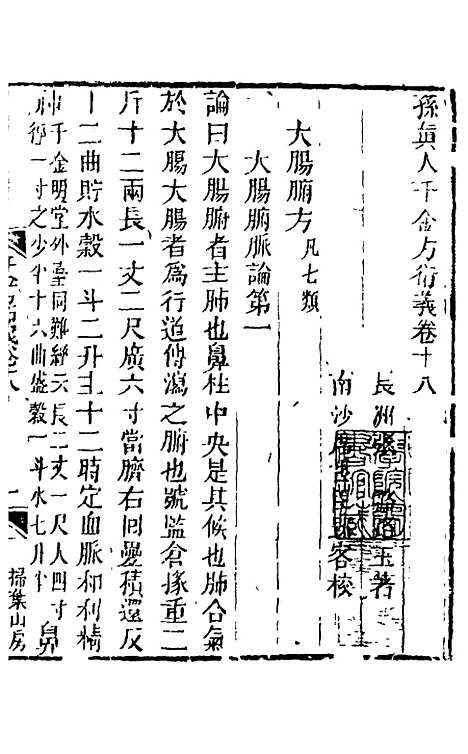 孫眞人千金方衍義卷十八
長洲張璐路玉著
南沙席 客校
大腸腑方凡七類
大腸腑脈論第一
論曰大腸腑者主肺也鼻柱中央是其候也肺合氣
於大腸大腸者爲行道傳瀉之腑也號監倉掾重二
斤十二兩長一丈二尺廣六寸當臍右回疊積還反
十二曲貯水榖一斗二升主十二時定血脈和利精
中千金明堂外臺同難經云長二丈一尺大四寸
徑一寸之少半十六曲盛榖一斗水七升半
鼻
千金方衍義卷八
一
掃葉山房